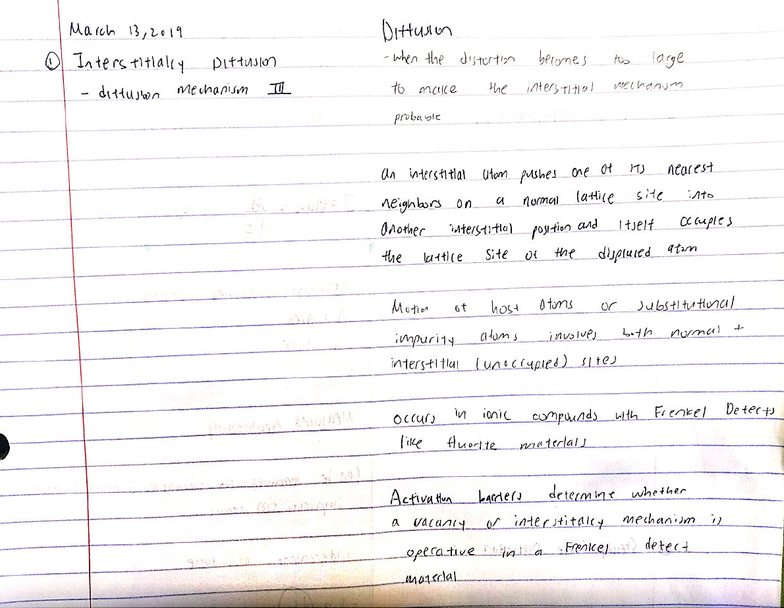 March 13, 2019
① Interstitialcy Diffusion
- diffusion mechanism III
Diffusion
- when the distortion becomes too large
to make the interstitial mechanism
probable
An interstitial atom pushes one of its nearest
neighbors on a normal lattice site into
another interstitial position and itself occupies
the lattice site of the displaced atom
Motion of host atoms or substitutional
impurity atoms involves both normal +
interstitial (unoccupied) sites
occurs in ionic compounds with Frenkel Defects
like fluorite materials
Activation barriers determine whether
a vacancy or interstitalcy mechanism is
operative in a Frenkel defect
material